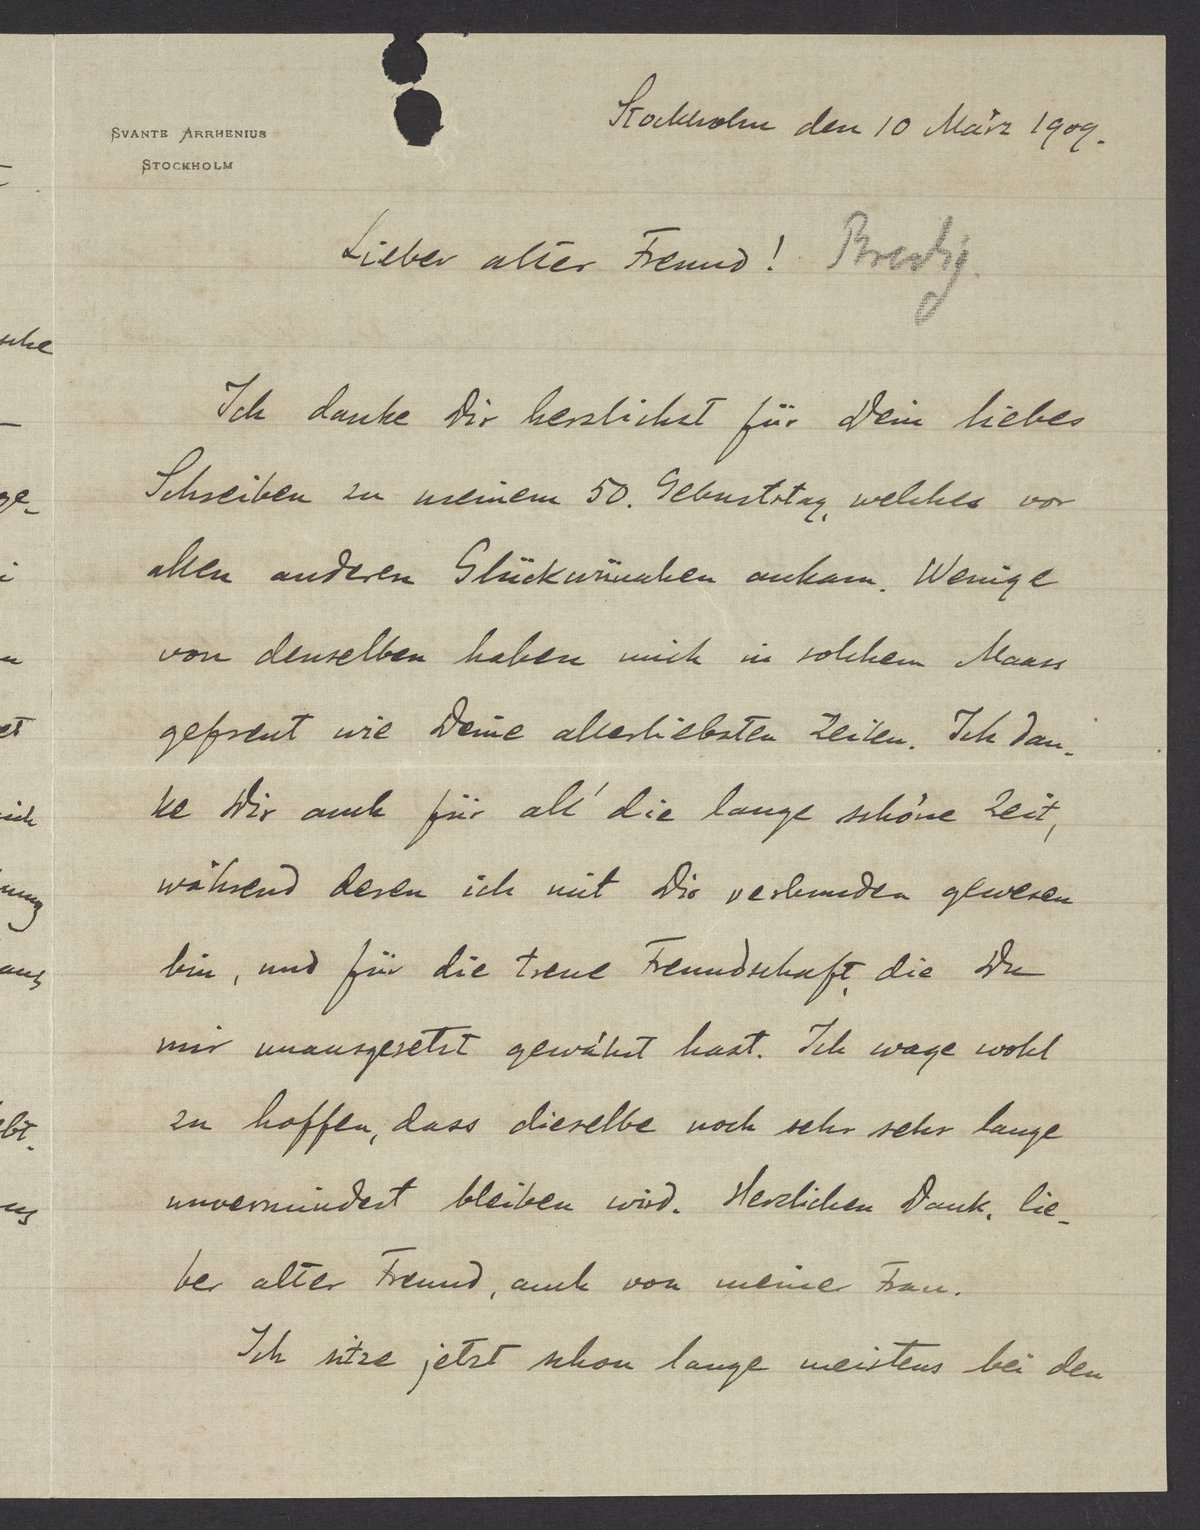 SVANTE ARRHENIUS
STOCKHOLM
Stockholm den 10 März 1909.
Lieber alter Freund! Bredig.
Ich danke Dir herzlichst für Dein liebes
Schreiben zu meinem 50. Geburtstag, welches vor
allen anderen Glückwünschen ankam. Wenige
von denselben haben mich in solchem Maass
gefreut wie Deine allerliebsten Zeilen. Ich dan-
ke Dir auch für all' die lange schöne Zeit,
während deren ich mit Dir verbunden gewesen
bin, und für die treue Freundschaft, die Du
mir unausgesetzt gewährt hast. Ich wage wohl
zu hoffen, dass dieselbe noch sehr sehr lange
unvermindert bleiben wird. Herzlichen Dank, lie-
ber alter Freund, auch von meiner Frau.
Ich sitze jetzt schon lange meistens bei den